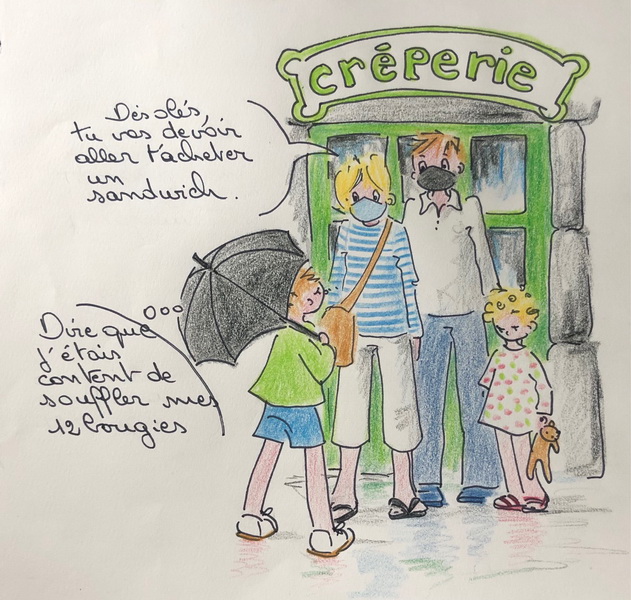 crêperie
Désolés,
tu vas devoir
aller t'acheter
un
sandwich.
Dire que
j'étais
content de
souffler mes
12 bougies